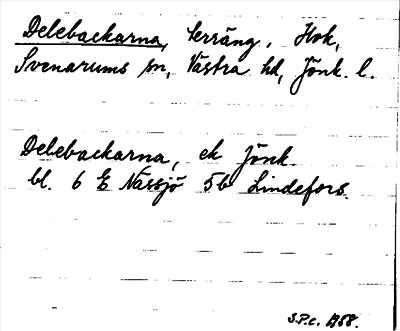 Delebackarna, terräng, Hok,
Svenarums sn, Västra hd, Jönk. l.
Delebackarna, ek Jönk.
bl. 6 E Nässjö 5b Lindefors.
S.P.c. 1958.